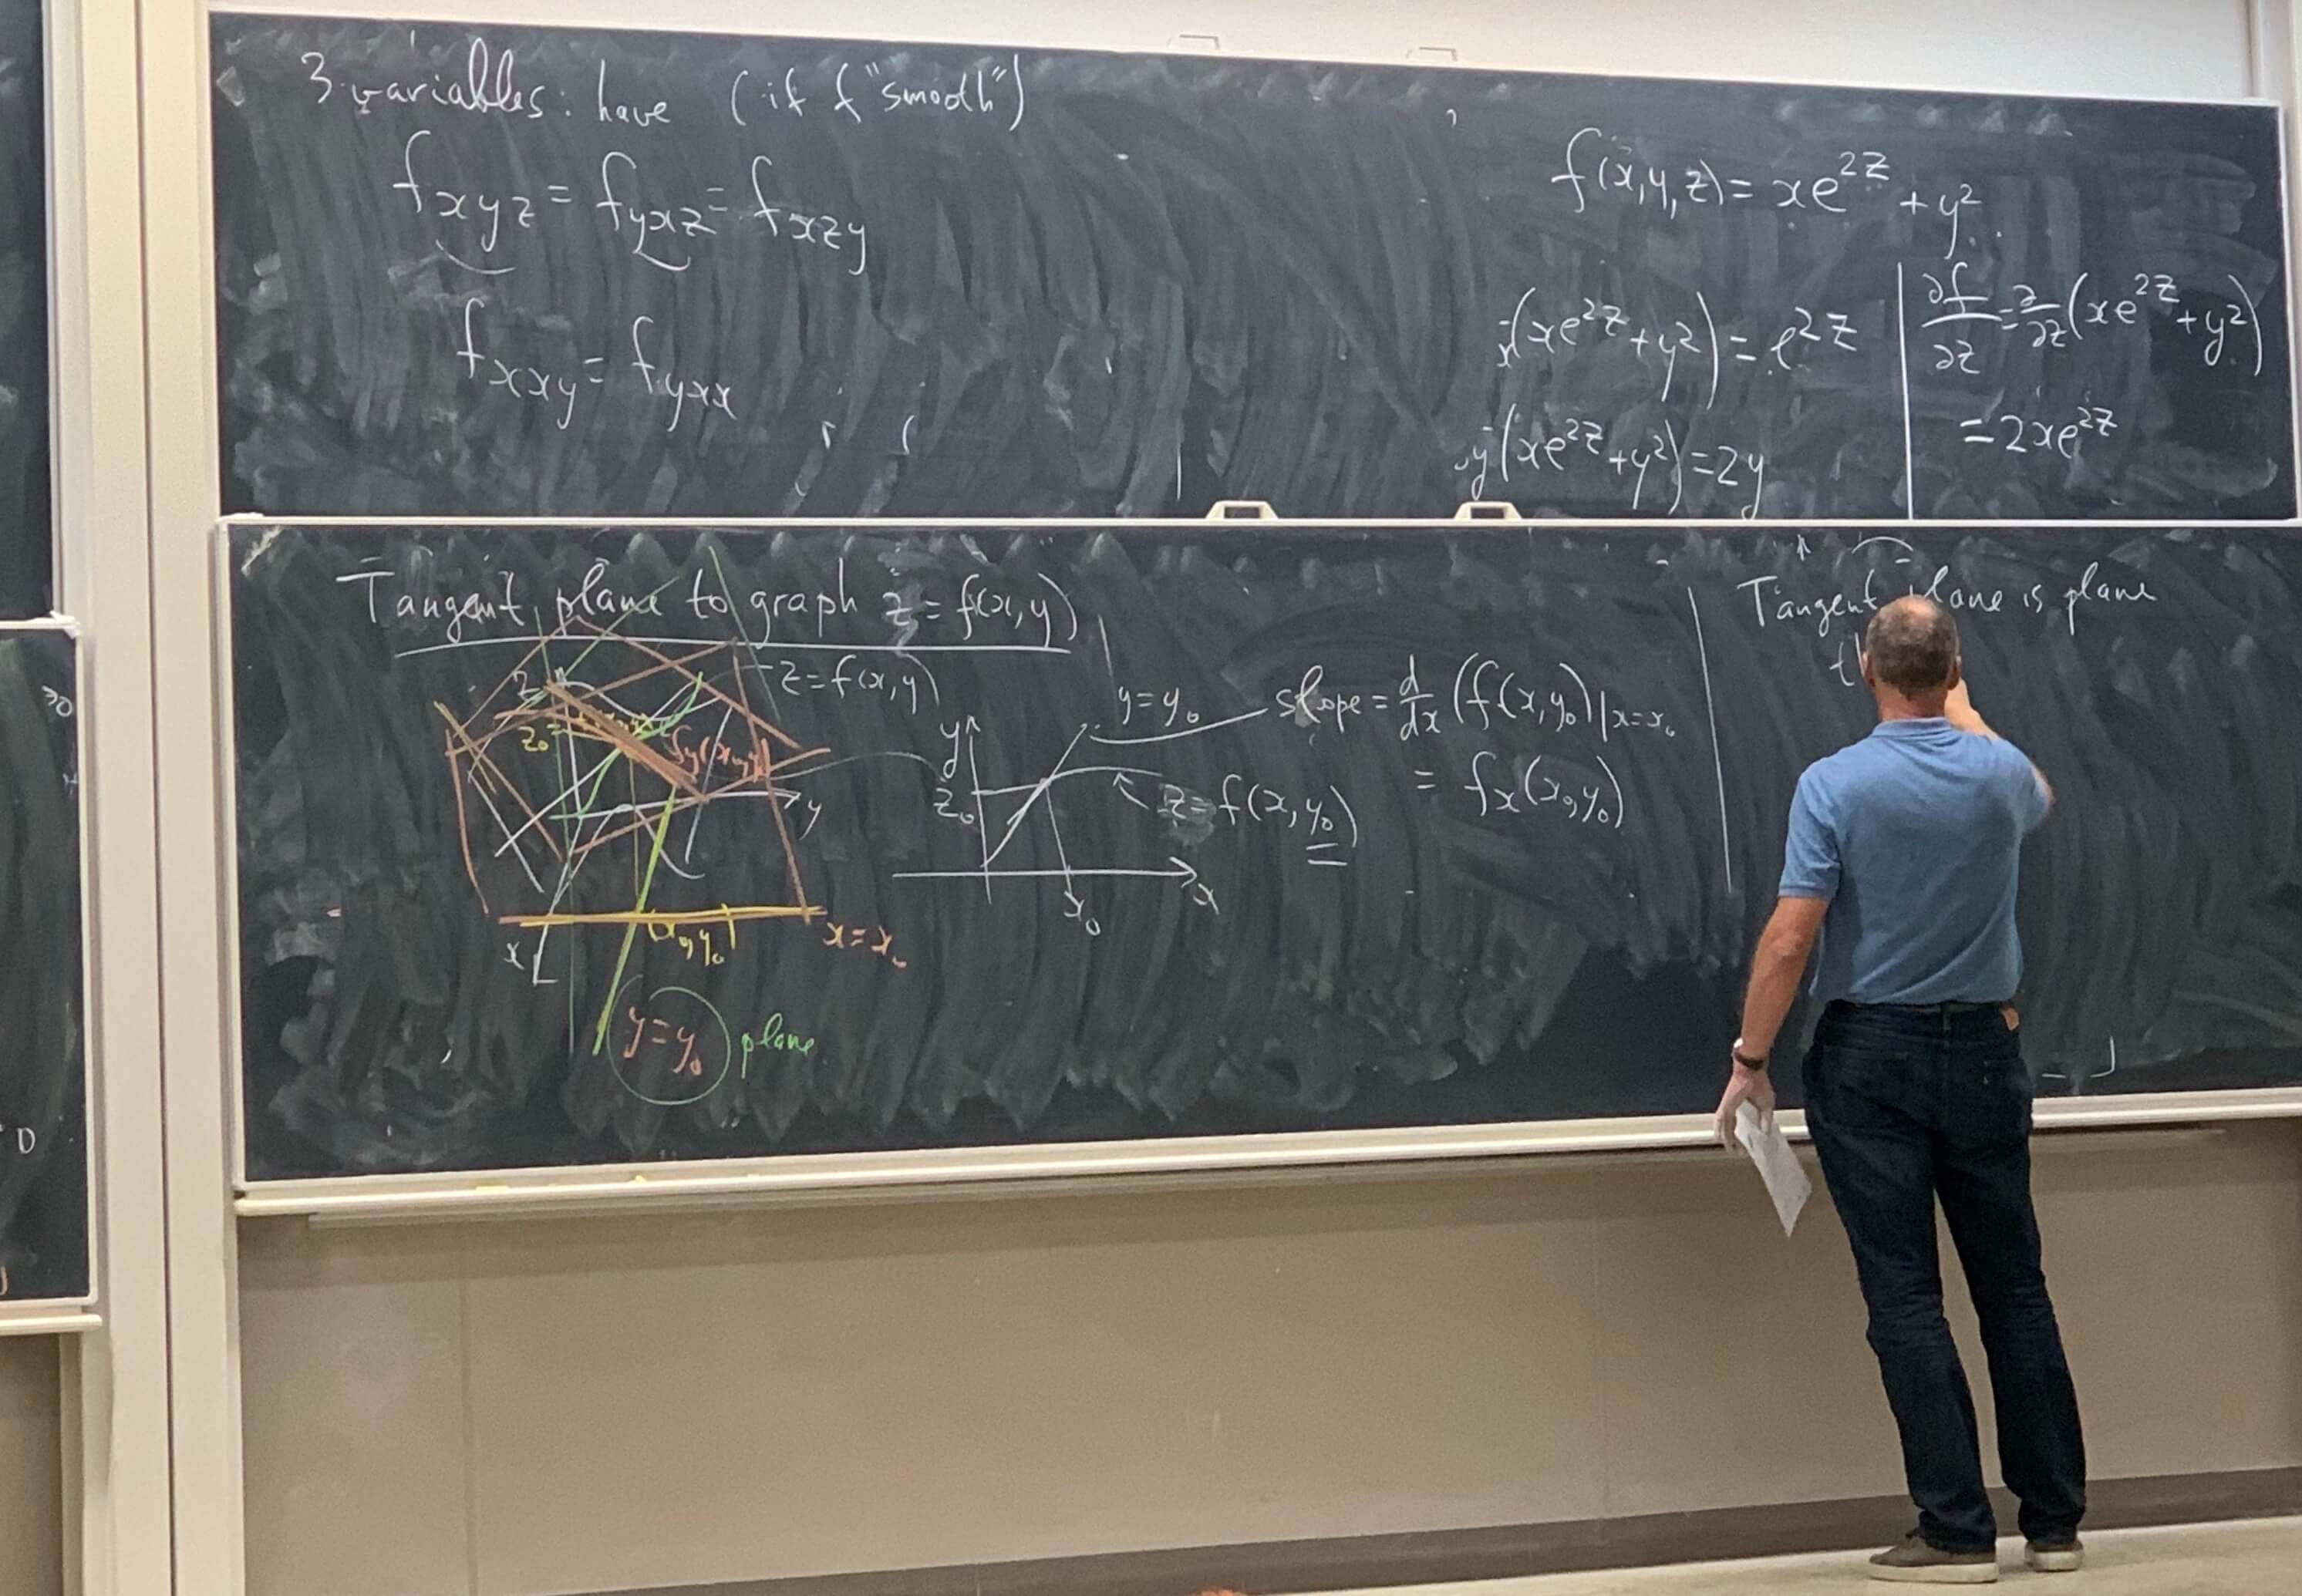 3 variables: have (if f "smooth")
fxyz = fyxz = fxzy
fxxy = fyxx
f(x,y,z) = xe^2z + y^2
x(xe^2z + y^2) = e^2z
y(xe^2z + y^2) = 2y
∂f/∂z = ∂/∂z (xe^2z + y^2)
= 2xe^2z
Tangent plane to graph z = f(x,y)
z = f(x,y)
z
z0
fy(x0,y0)
y
x
(x0,y0)
x = x0
y = y0 plane
y
z0
x0
x
y = y0
z = f(x,y0)
slope = d/dx (f(x,y0)|x=x0
= fx(x0,y0)
Tangent plane is plane